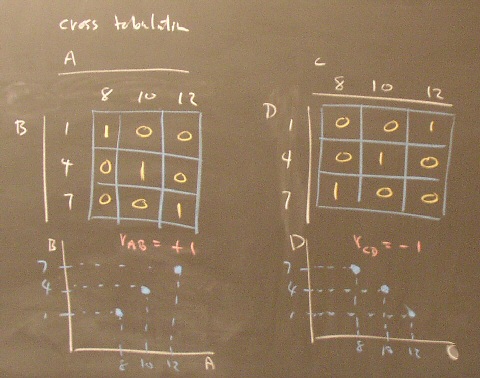 cross tabulation
A
8 10 12
B 1 1 0 0
4 0 1 0
7 0 0 1
r_AB = +1
B
7
4
1
8 10 12 A
C
8 10 12
D 1 0 0 1
4 0 1 0
7 1 0 0
r_CD = -1
D
7
4
1
8 10 12 C